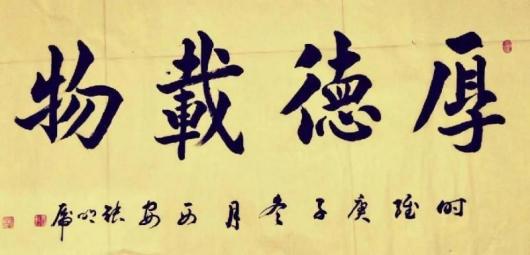 厚德載物
时維庚子冬月西安張明虎